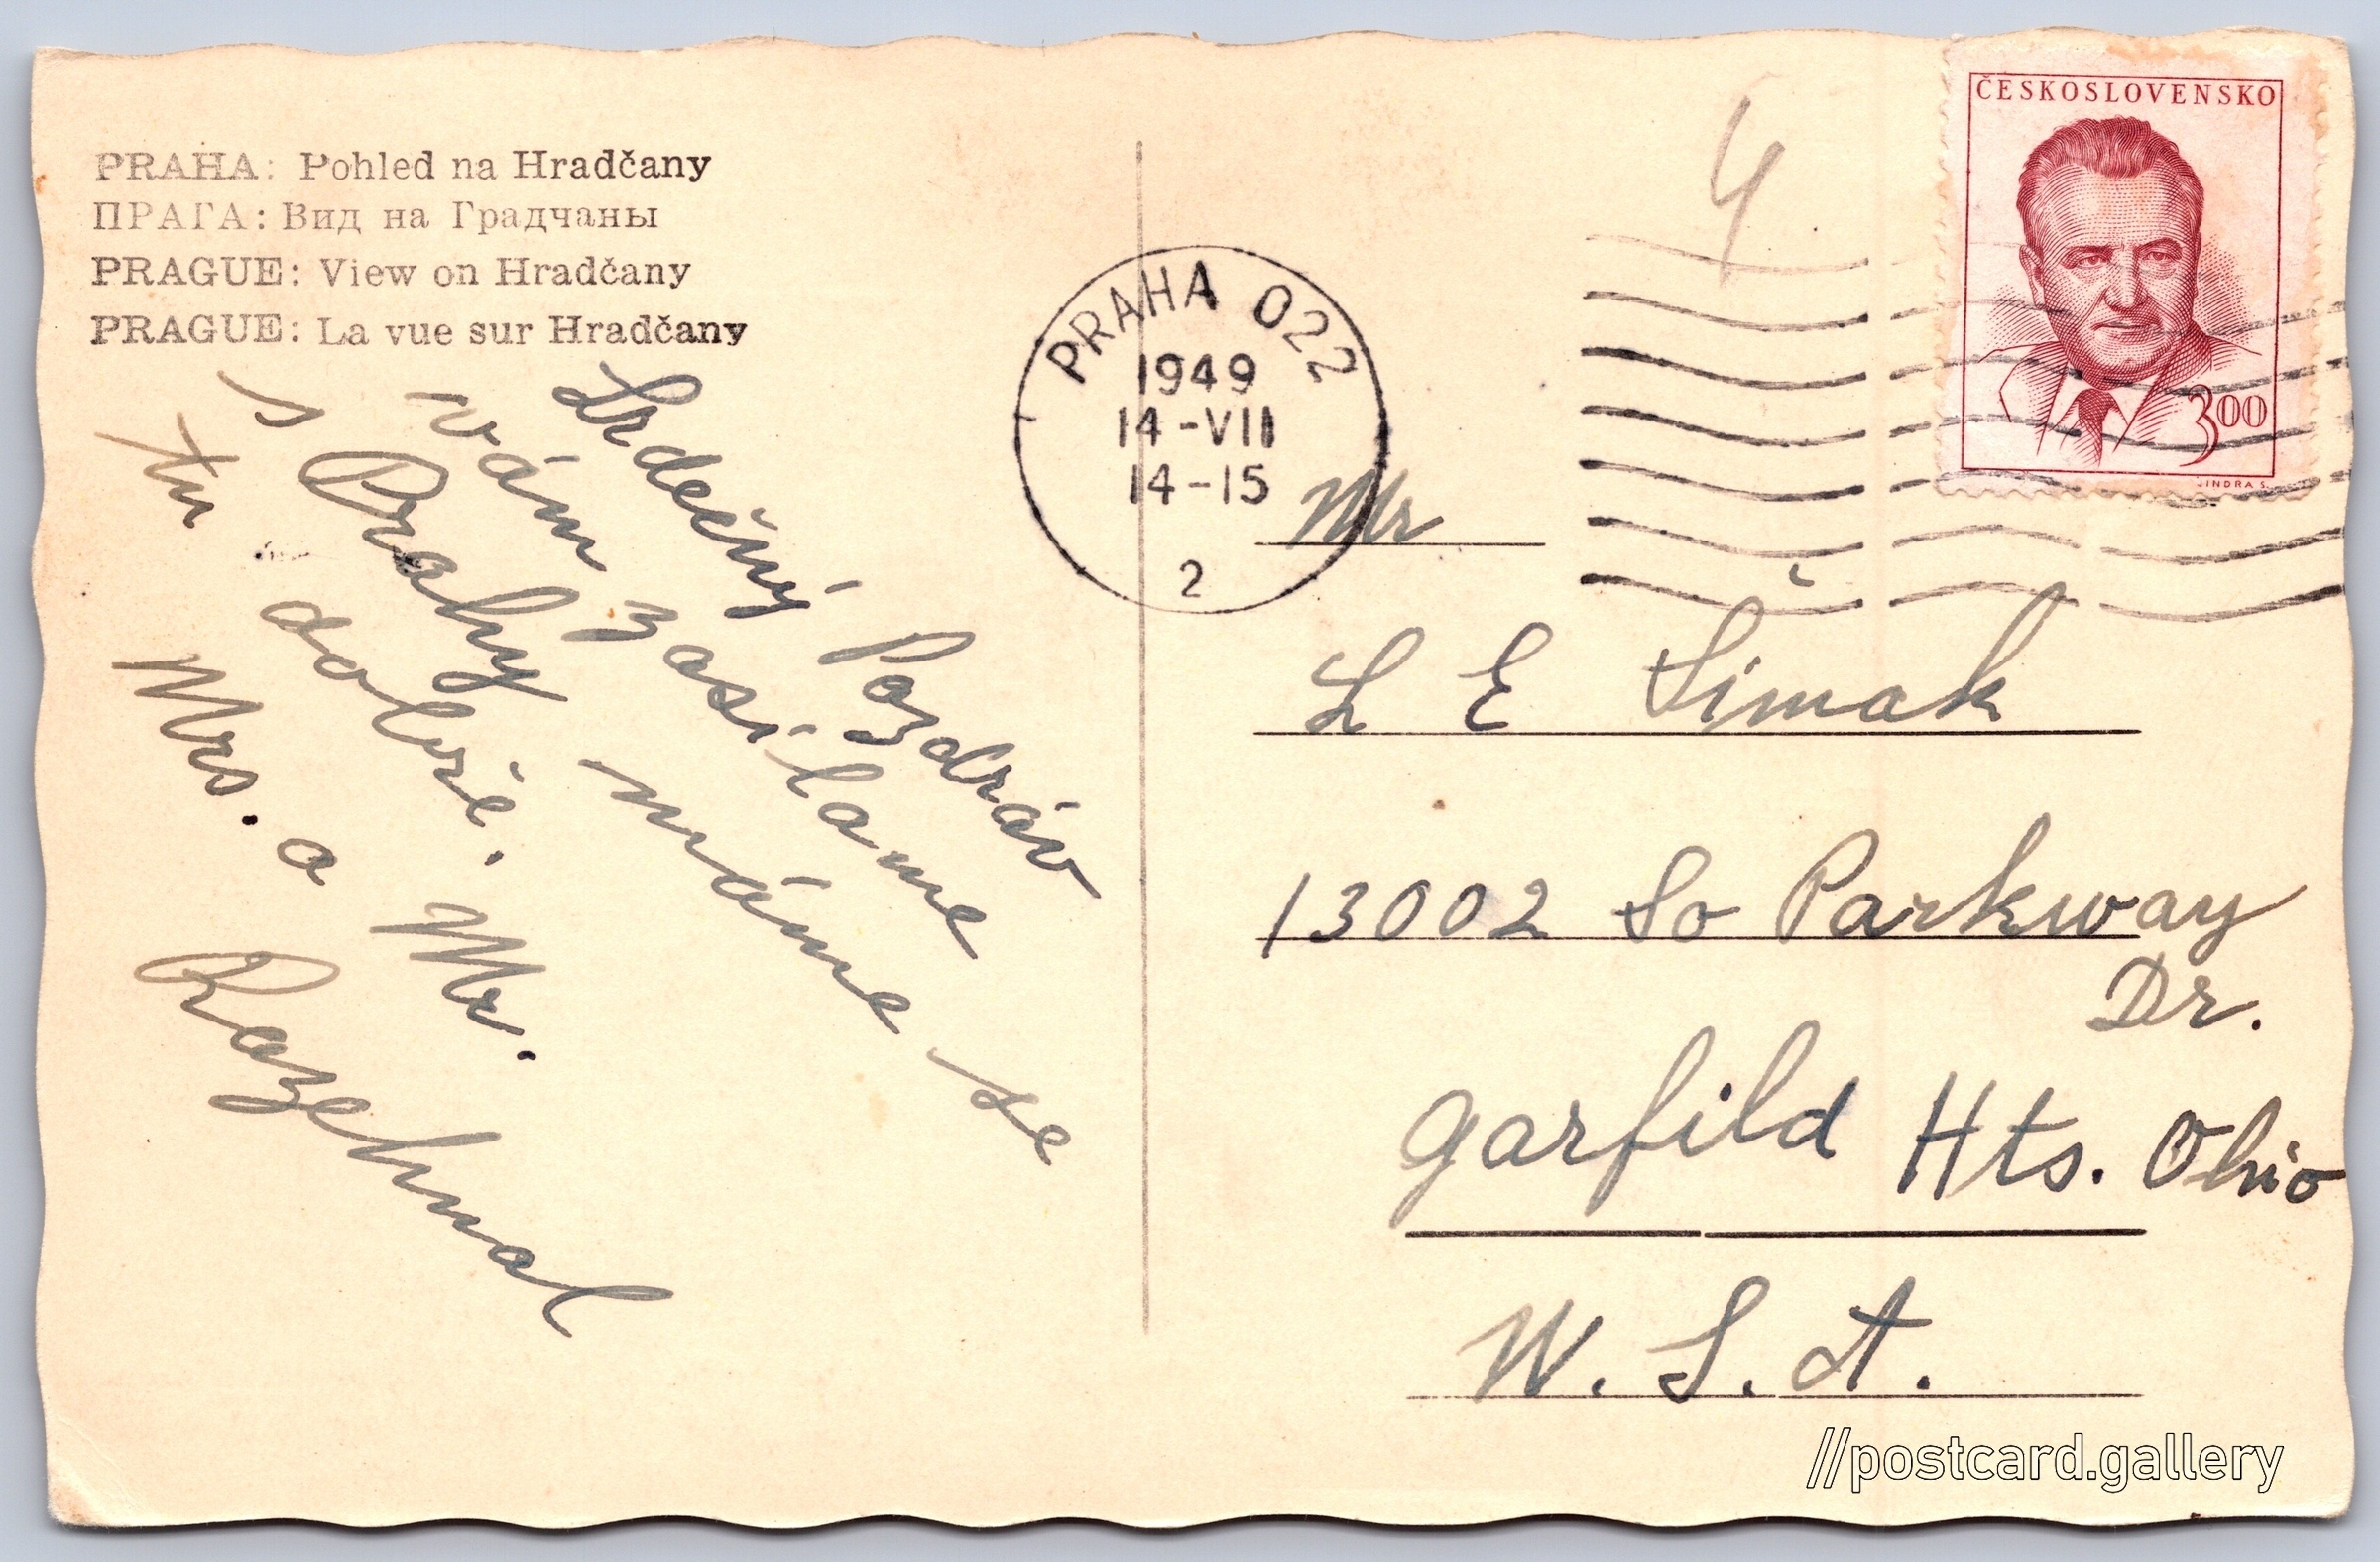 PRAHA: Pohled na Hradčany
ПРАГА: Вид на Градчаны
PRAGUE: View on Hradčany
PRAGUE: La vue sur Hradčany
Srdečný Pozdráv
vám zasílame
s Prahy máme se
tu dobře.
Mrs. a Mr.
PRAHA 022
1949
14-VII
14-15
2
4
ČESKOSLOVENSKO
3.00
JINDRA S.
Mr
L E Šimak
13002 So Parkway
Dr.
Garfild Hts. Ohio
U.S.A.
//postcard.gallery